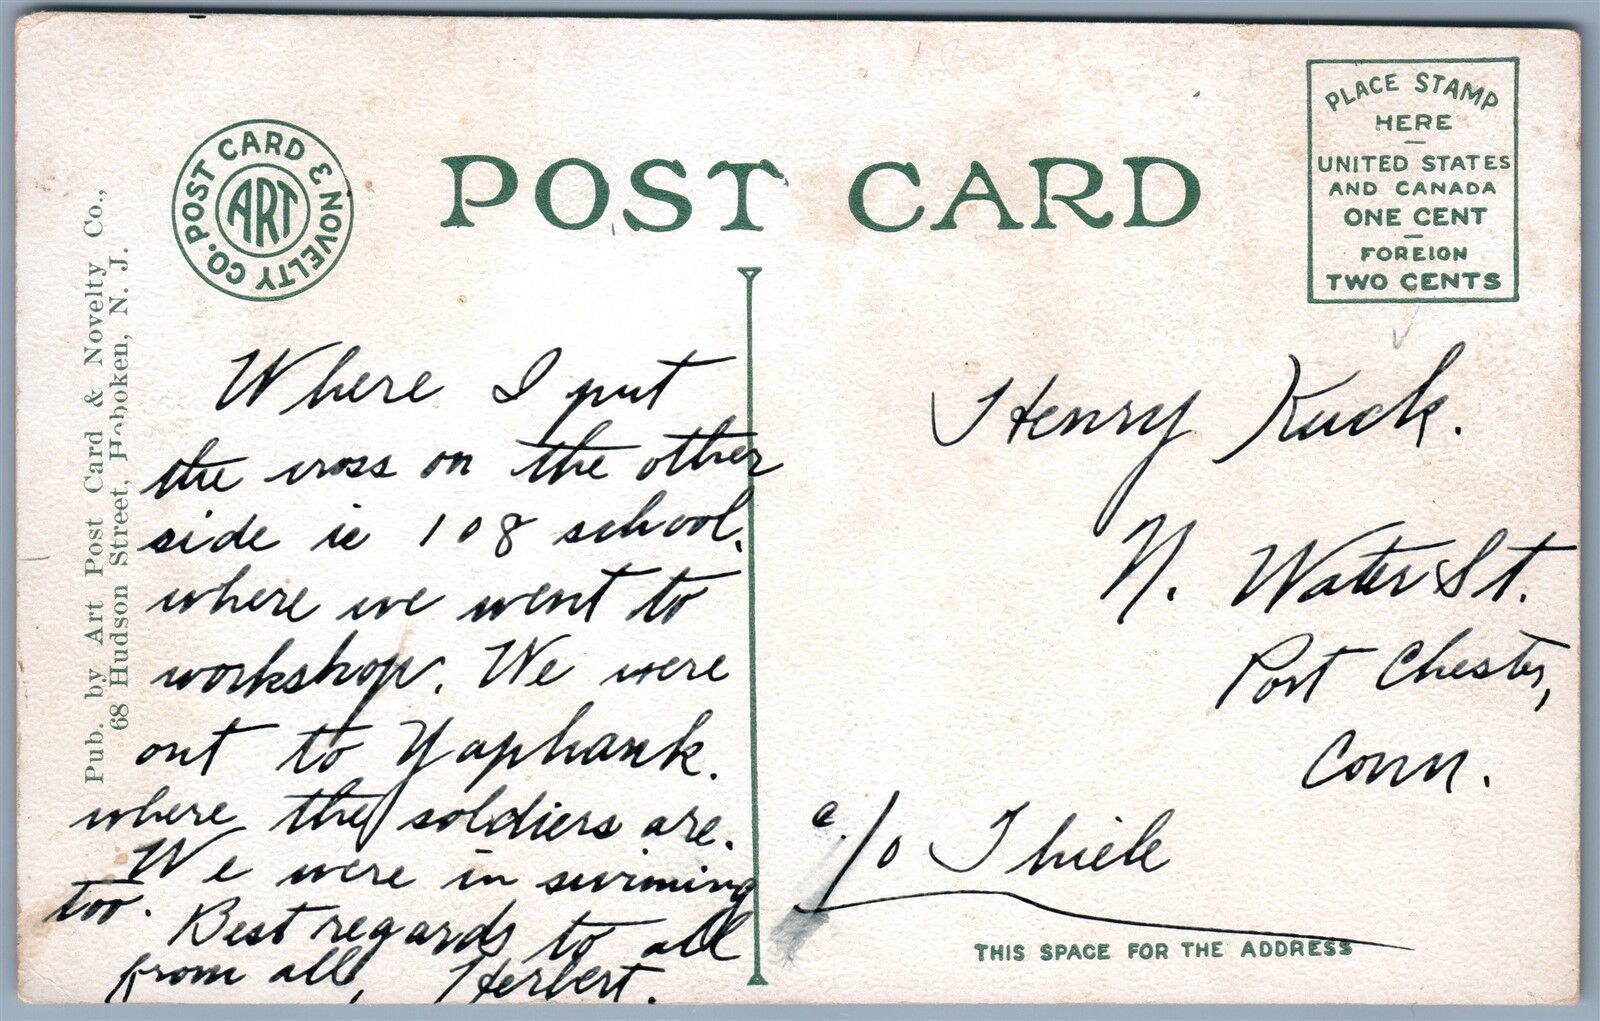 POST CARD
POST CARD & NOVELTY CO.
ART
PLACE STAMP
HERE
UNITED STATES
AND CANADA
ONE CENT
FOREIGN
TWO CENTS
Pub. by Art Post Card & Novelty Co.,
68 Hudson Street, Hoboken, N. J.
Where I put
the cross on the other
side is 108 school.
where we went to
workshop. We were
out to Yaphank.
where the soldiers are.
We were in swiming
too.
Best regards to all
from all, Herbert.
Henry Kuck.
N. Water St.
Port Chester,
Conn.
c/o Thiele
THIS SPACE FOR THE ADDRESS